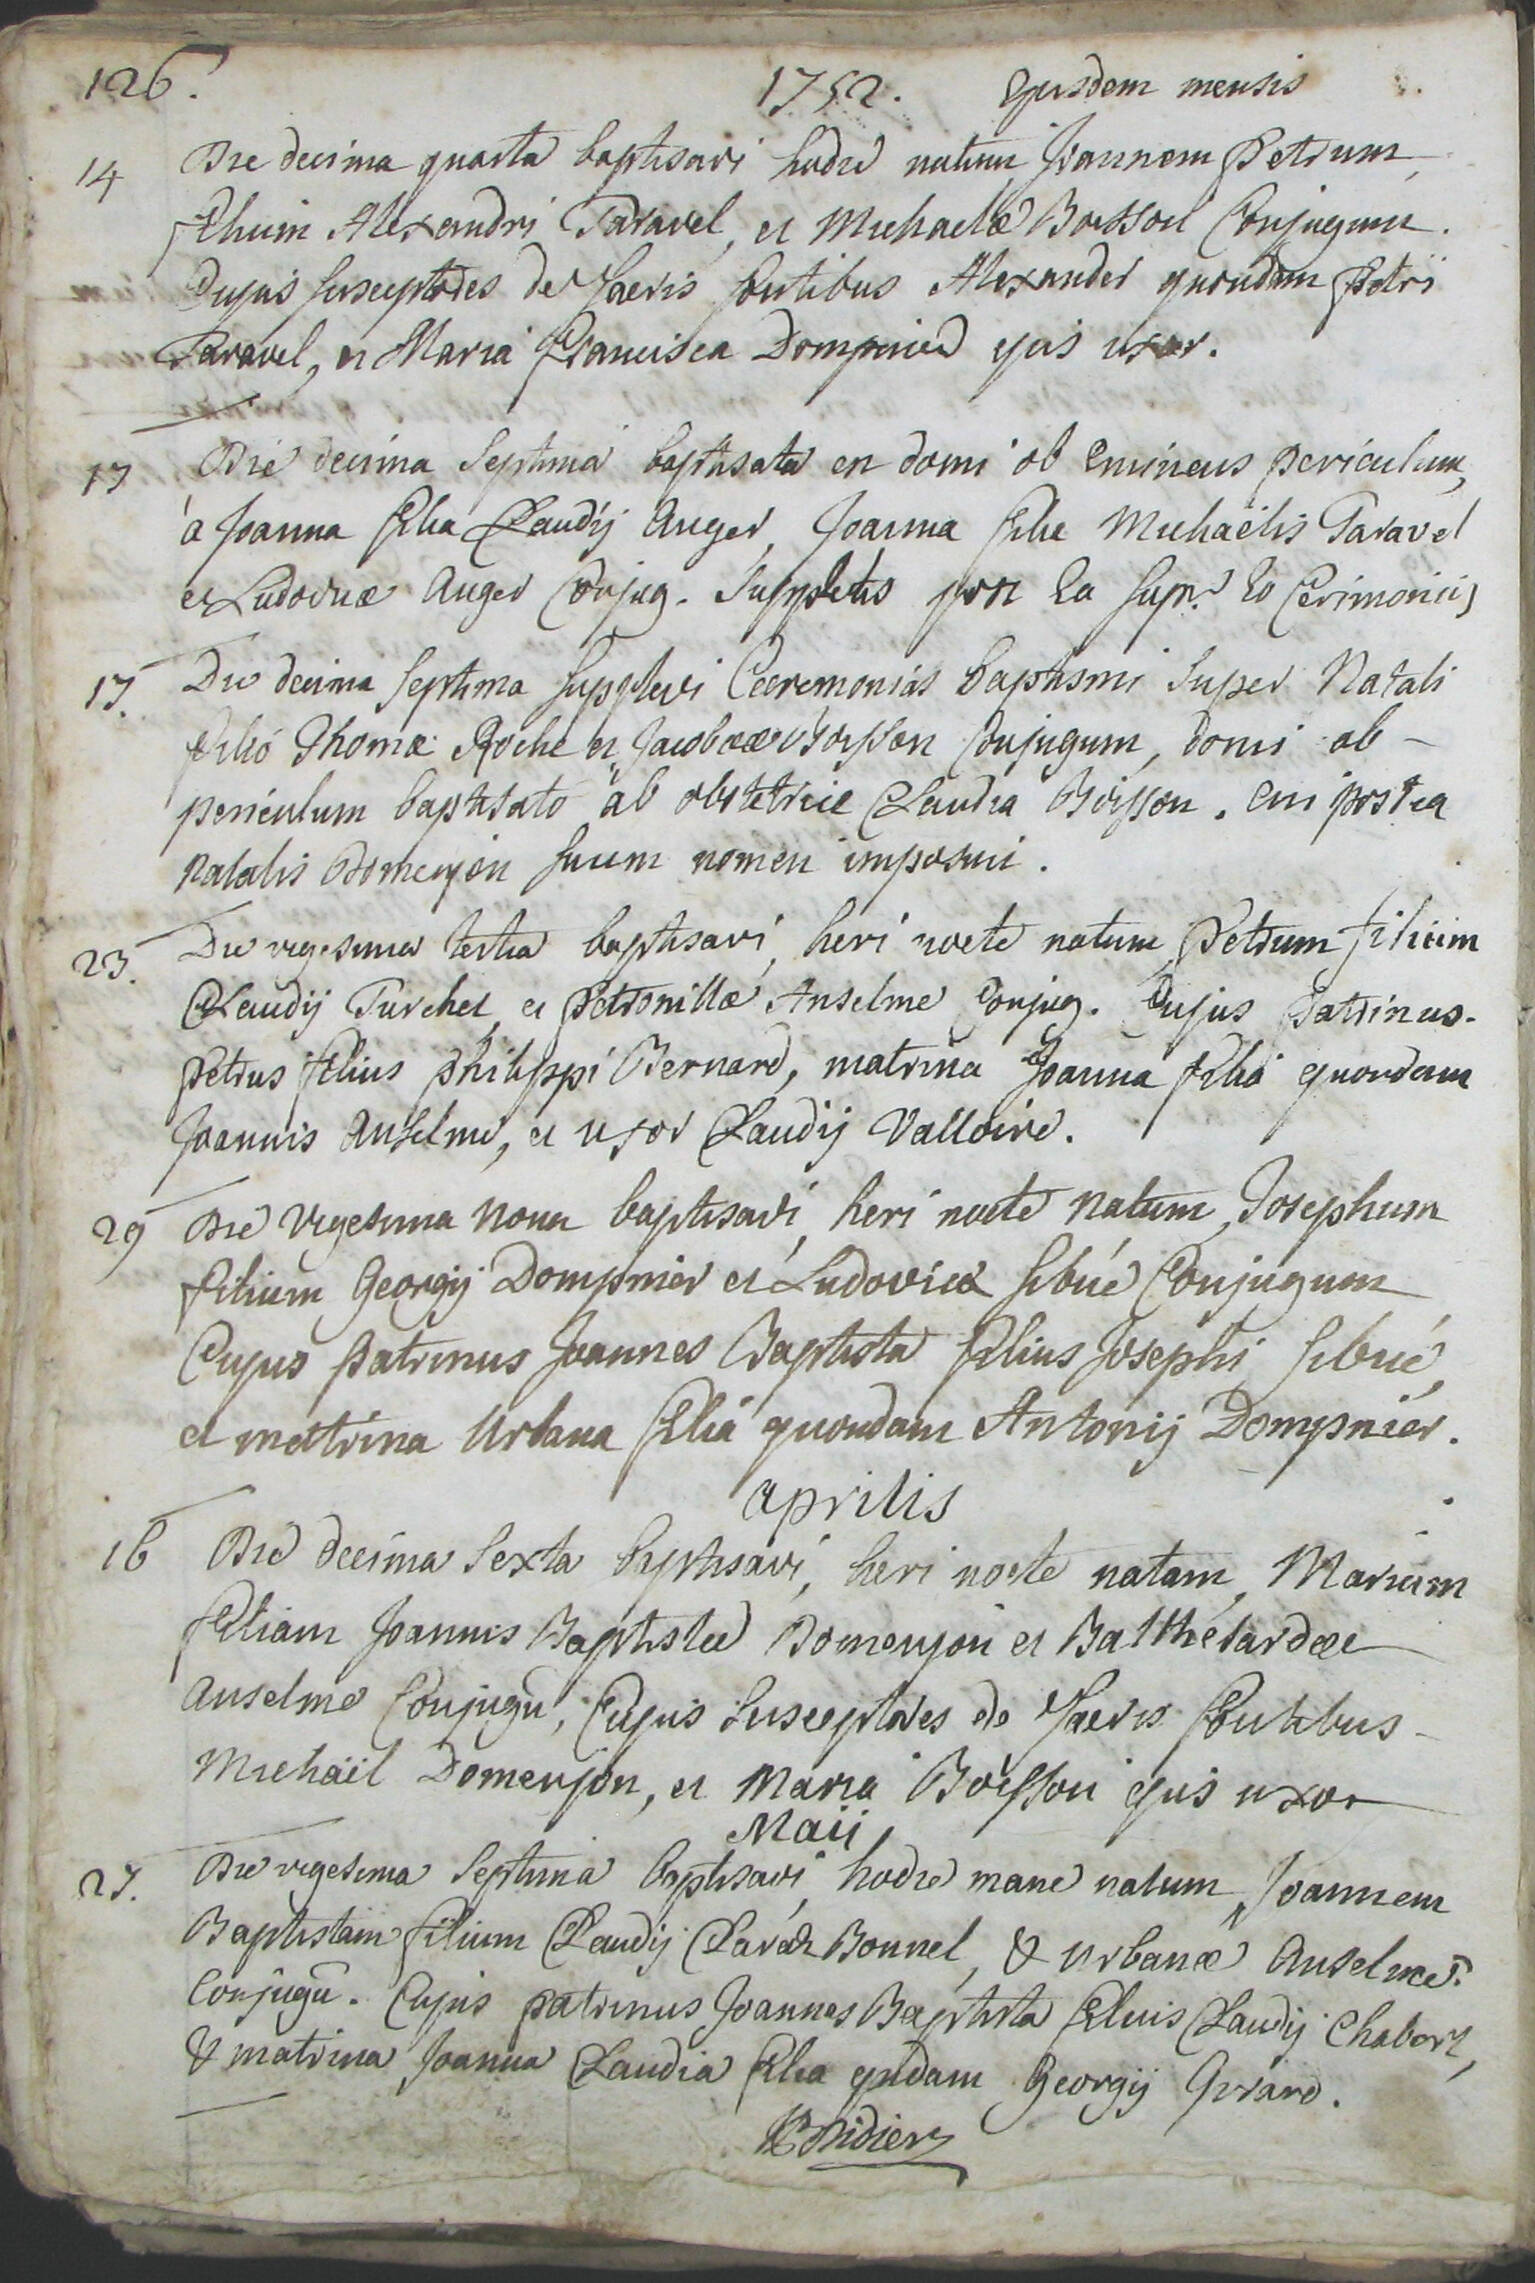 126.
1752. Ejusdem mensis
14 Die decima quarta baptisavi hodie natum Joannem Petrum,
filium Alexandri Taravel, et Michaelæ Boisson Conjugum.
Cujus susceptores de sacris fontibus Alexander quondam Petri
Taravel, et Maria Francisca Dompnier ejus uxor.
17 Die decima septima baptisata est domi ob eminens periculum,
à Joanna filia Claudij Auger, Joanna filia Michaëlis Taravel
et Ludovicæ Auger Conjug. Suppletis Cerimoniis
17. Die decima septima supplevi Cæremonias baptismi super Natali
filio Thomæ Roche et Jacobææ Boisson Conjugum, domi ob
periculum baptisato ab obstetrice Claudia Boisson. cui postea
Natalis Domenjon suum nomen imposui.
23. Die vigesima tertia baptisavi, heri nocte natum, Petrum filium
Claudij Turchet, et Petronillæ Anselme Conjug. Cujus Patrinus
Petrus filius Philippi Bernard, matrina Joanna filia quondam
Joannis Anselme, et uxor Claudij Valloire.
29 Die vigesima nona baptisavi, heri nocte natum, Josephum
filium Georgij Dompnier et Ludovicæ Sibué Conjugum
Cujus patrinus Joannes Baptista filius Josephi Sibué,
et matrina Urbana filia quondam Antonij Dompnier.
aprilis
16 Die decima sexta baptisavi, heri nocte natam, Mariam
filiam Joannis Baptistæ Domenjon et Balthésardææ
Anselme Conjugū, Cujus susceptores de sacris fontibus
Michaël Domenjon, et Maria Boisson ejus uxor
Maii
27. Die vigesima septima baptisavi, hodie mane natum, Joannem
Baptistam filium Claudij Claraz Bonnel, & Urbanæ Anselme
Conjugū. Cujus patrinus Joannes Baptista filius Claudij Chaborz,
& matrina Joanna Claudia filia qūdam Georgij Girard.